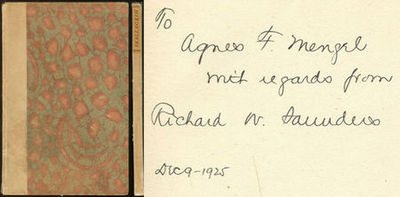 To
Agnes F. Mengel
with regards from
Richard W. Saunders
Dec 9-1925